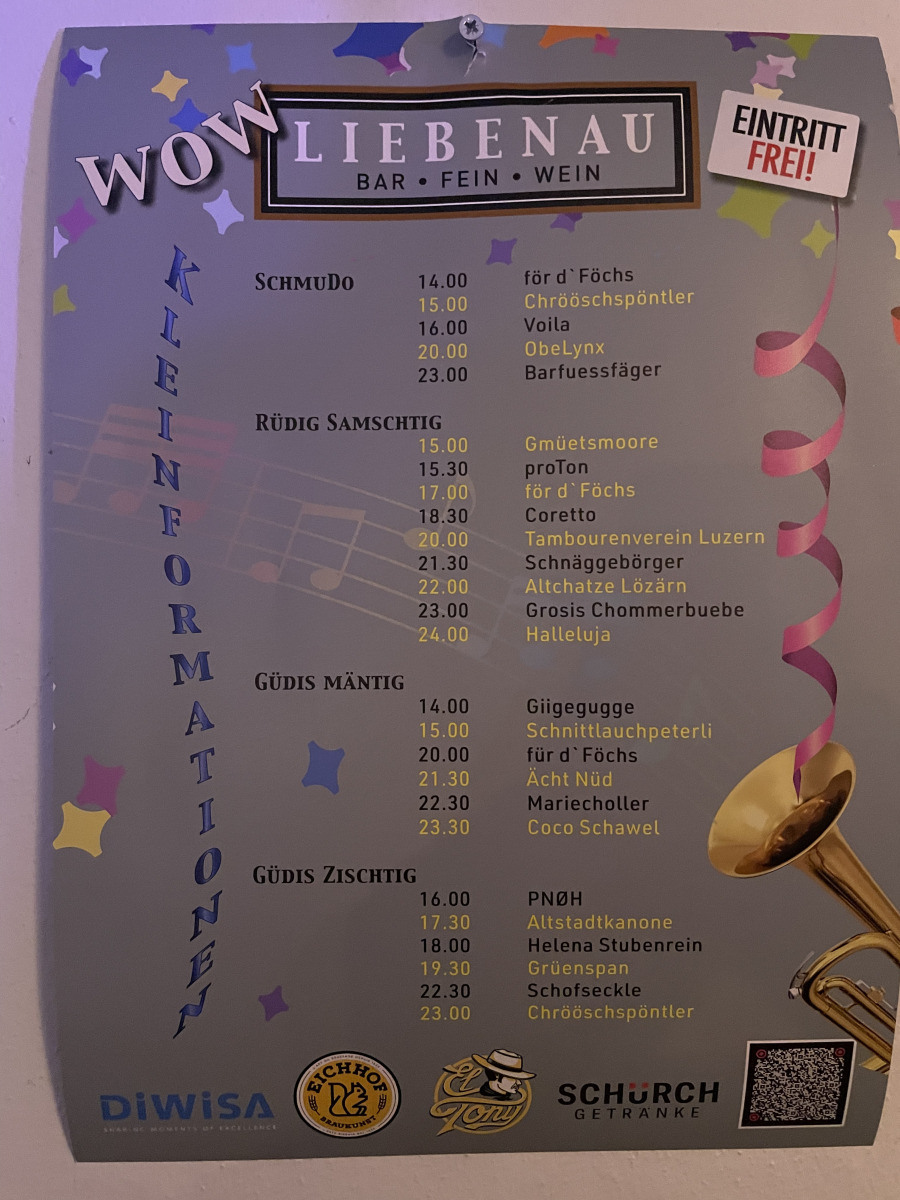 WOW
LIEBENAU
BAR • FEIN • WEIN
EINTRITT
FREI!
KLEINFORMATIONEN
SCHMUDO 14.00 för d`Föchs
15.00 Chrööschspöntler
16.00 Voila
20.00 ObeLynx
23.00 Barfuessfäger
RÜDIG SAMSCHTIG
15.00 Gmüetsmoore
15.30 proTon
17.00 för d`Föchs
18.30 Coretto
20.00 Tambourenverein Luzern
21.30 Schnäggebörger
22.00 Altchatze Lözärn
23.00 Grosis Chommerbuebe
24.00 Halleluja
GÜDIS MÄNTIG
14.00 Giigegugge
15.00 Schnittlauchpeterli
20.00 für d`Föchs
21.30 Ächt Nüd
22.30 Mariecholler
23.30 Coco Schawel
GÜDIS ZISCHTIG
16.00 PNØH
17.30 Altstadtkanone
18.00 Helena Stubenrein
19.30 Grüenspan
22.30 Schofseckle
23.00 Chrööschspöntler
DiWiSA
SHARING MOMENTS OF EXCELLENCE
EICHHOF
BRAUKUNST
El Tony
SCHÜRCH
GETRÄNKE